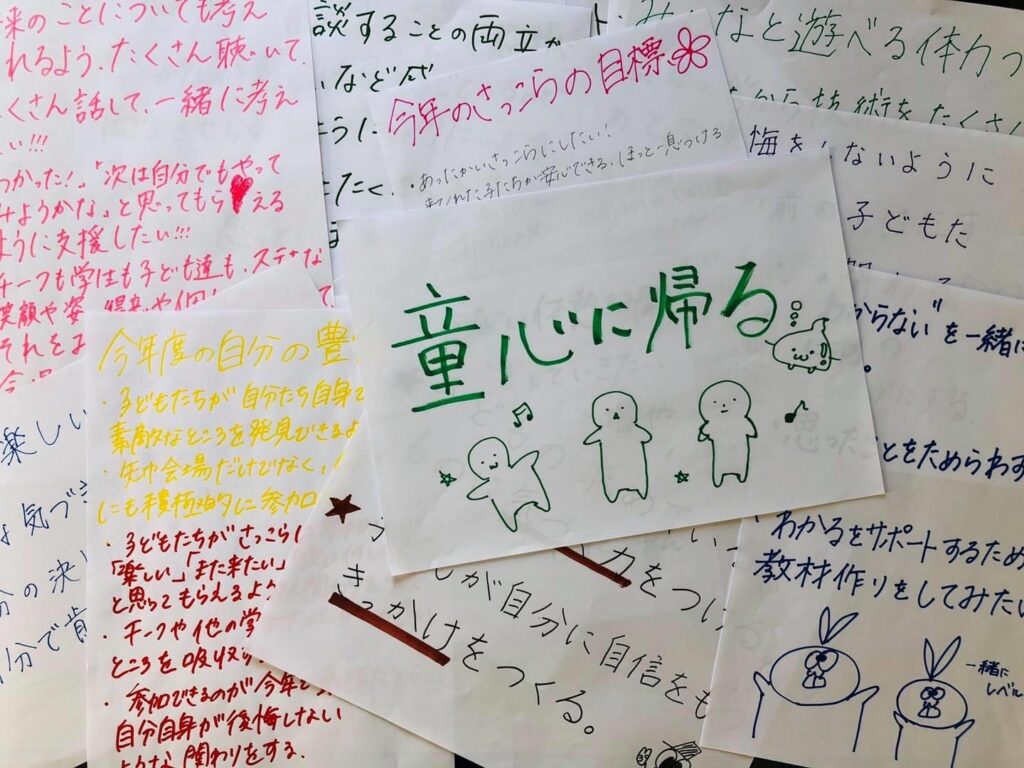 来のことについても考え
れるよう、たくさん聴いて、
くさん話して、一緒に考え
い!!!
つかった!」「次は自分でもやって
みようかな」と思ってもらえる
ように支援したい!!!
チーフも学生も子ども達も、ステキな
笑顔や姿
それをま
談することの両立が
など
ように
今年のさっこらの目標
・あったかいさっこらにしたい!
まれた子たちが安心できる、ほっと一息つける
みんなと遊べる体力つ
技術をたくさん
悔をしないように
子どもた
童心に帰る
からない"を一緒に
ことをためらわず
わかるをサポートするため
教材作りをしてみたい
一緒に
レベル
今年度の自分の豊
・子どもたちが自分たち自身で
素敵なところを発見できるよ
・矢巾会場だけでなく、
にも積極的に参加
・子どもたちがさっこらに
「楽しい」「また来たい」
と思ってもらえるよう
・チーフや他の学
ところを吸収
・参加できるのが今年
自分自身が後悔しない
ような関わりをする。
楽しい
な気づ
分の決
自分で肯
力をつけ
が自分に自信をも
きっかけをつくる。